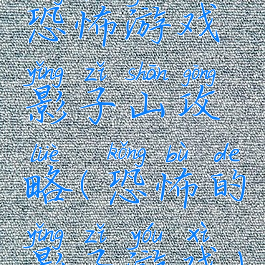 恐怖游戏
yǐng zǐ shān gōng
影子山攻
lüè kǒng bù de
略(恐怖的
yǐng zǐ yóu xì
影子游戏)